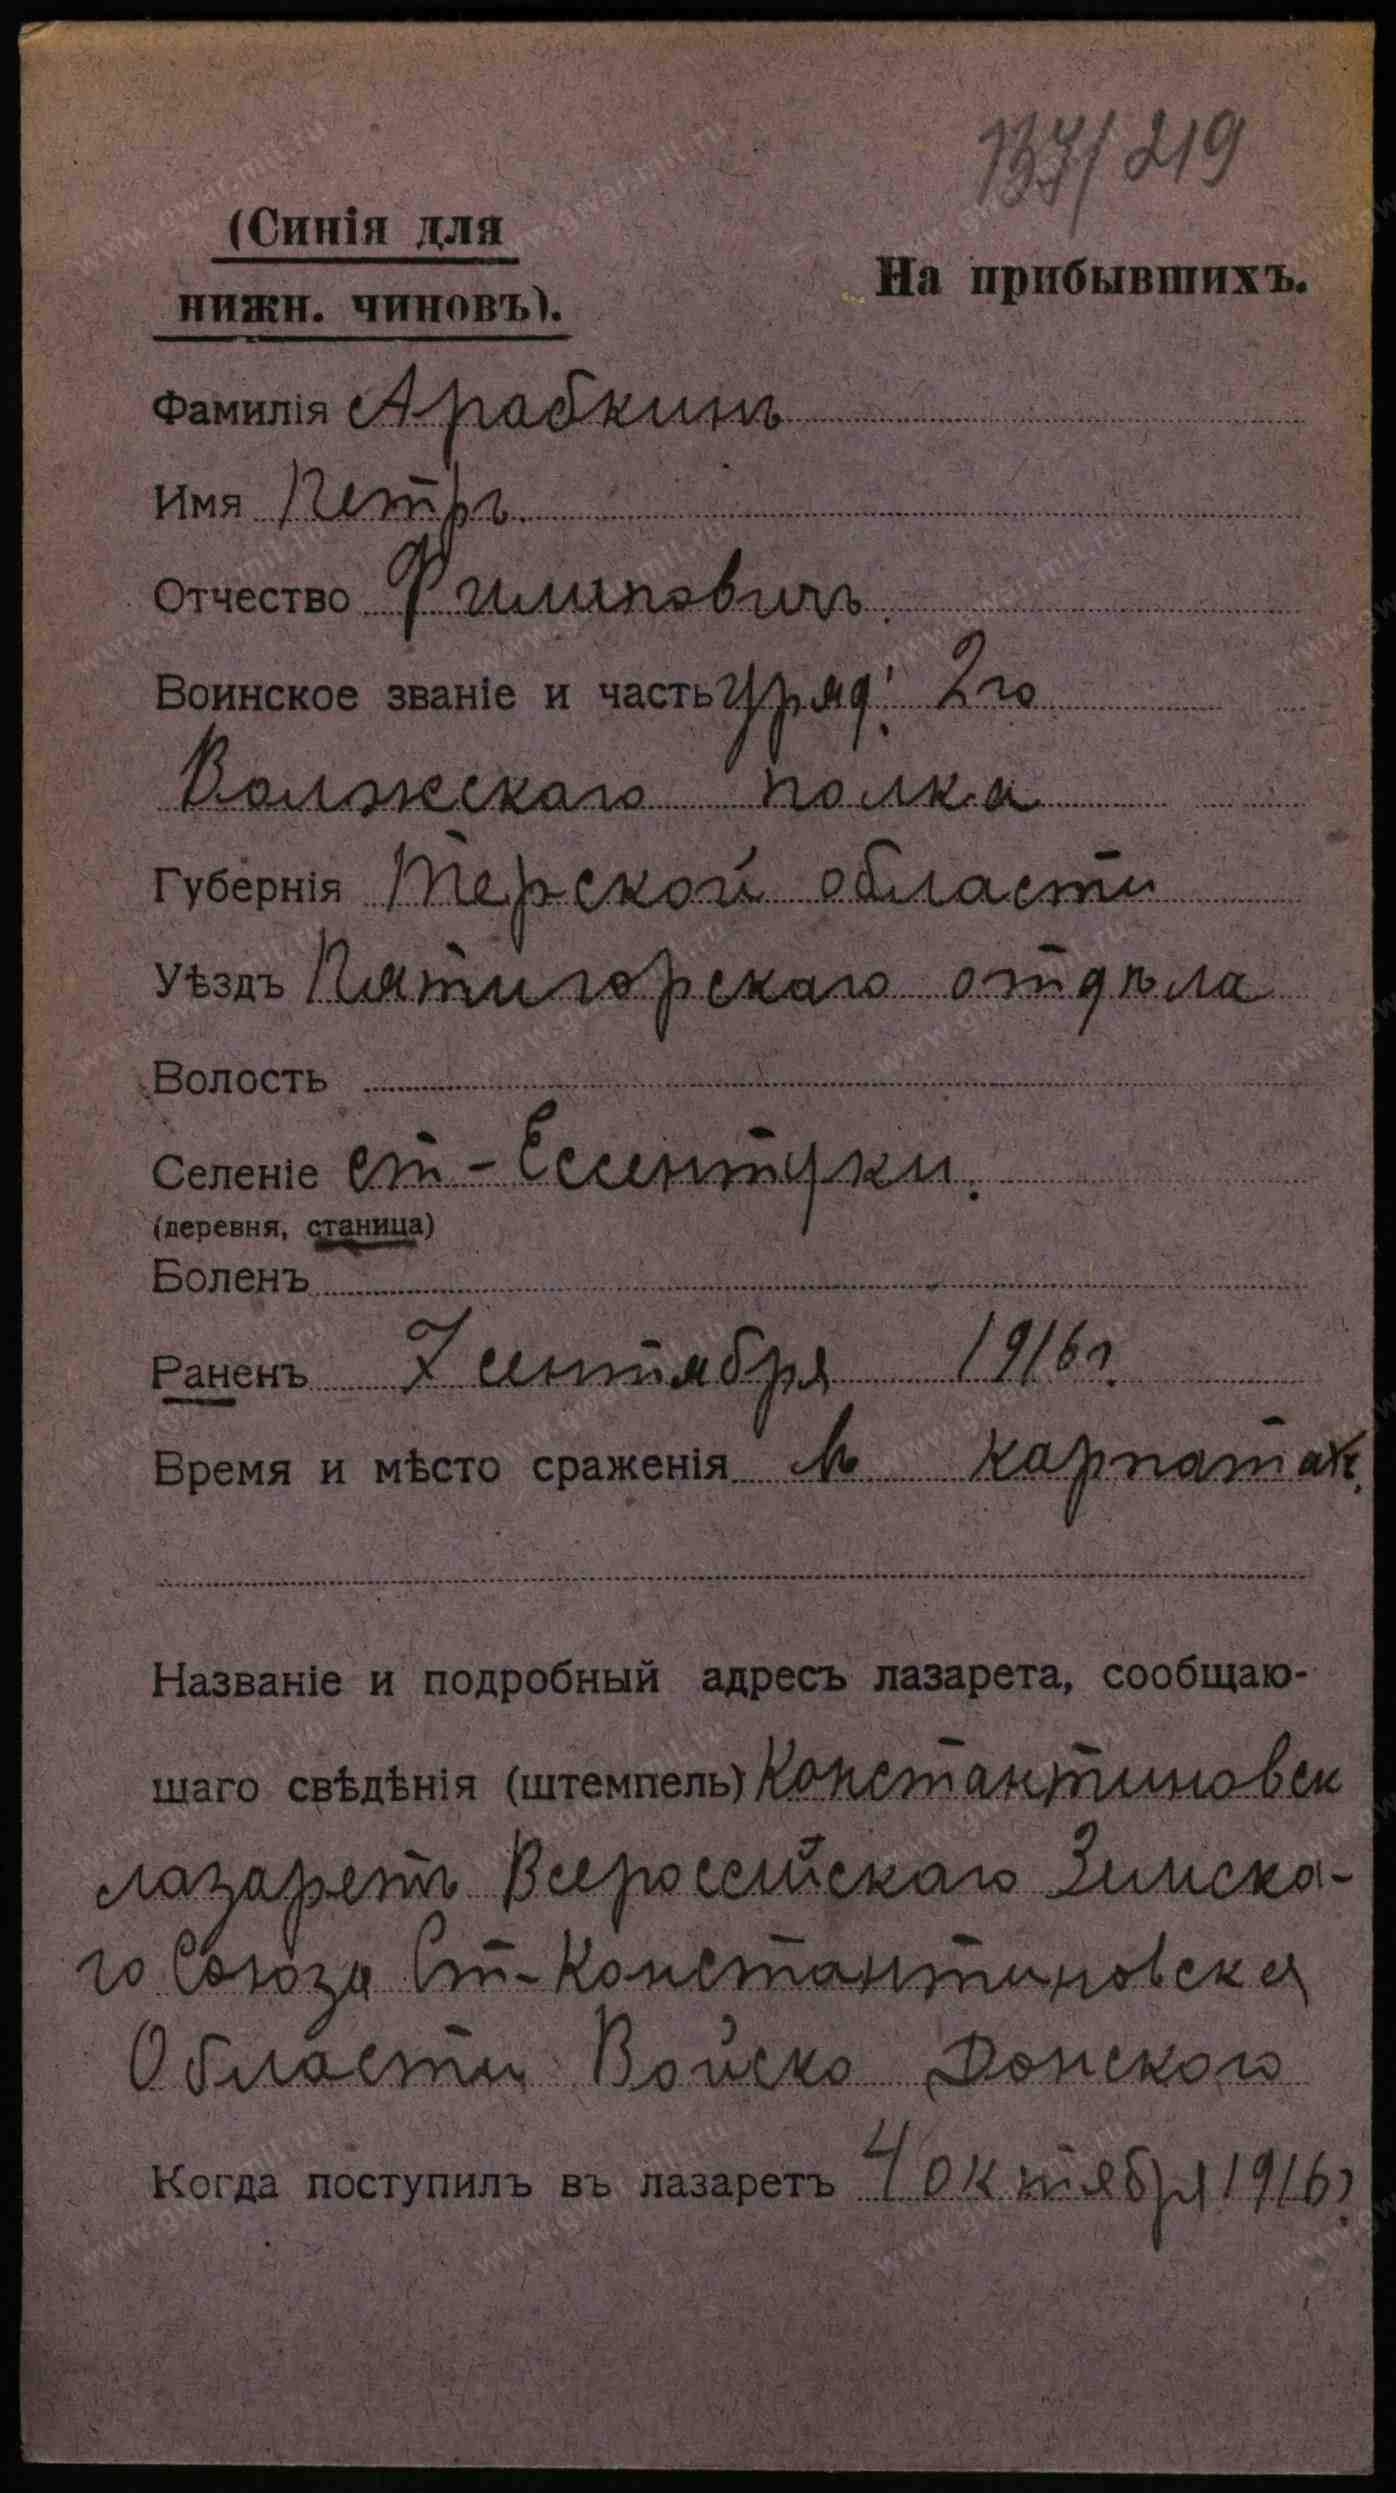 137/219
(Синія для
нижн. чиновъ).
На прибывшихъ.
Фамилія Арабкинъ
Имя Петръ
Отчество Филиповичъ
Воинское званіе и часть уряд. 2го
Волжскаго полка
Губернія Терской области
Уѣздъ Пятигорскаго отдѣла
Волость
Селеніе ст-Ессентуки.
(деревня, станица)
Боленъ
Раненъ 7 сентября 1916 г.
Время и мѣсто сраженія въ карпатахъ.
Названіе и подробный адресъ лазарета, сообщаю-
щаго свѣдѣнія (штемпель) Константиновск
лазаретъ Всероссійскаго Земска-
го Союза Ст-Константиновская
Области Войско Донского
Когда поступилъ въ лазаретъ 4 октября 1916 г.
www.gwar.mil.ru